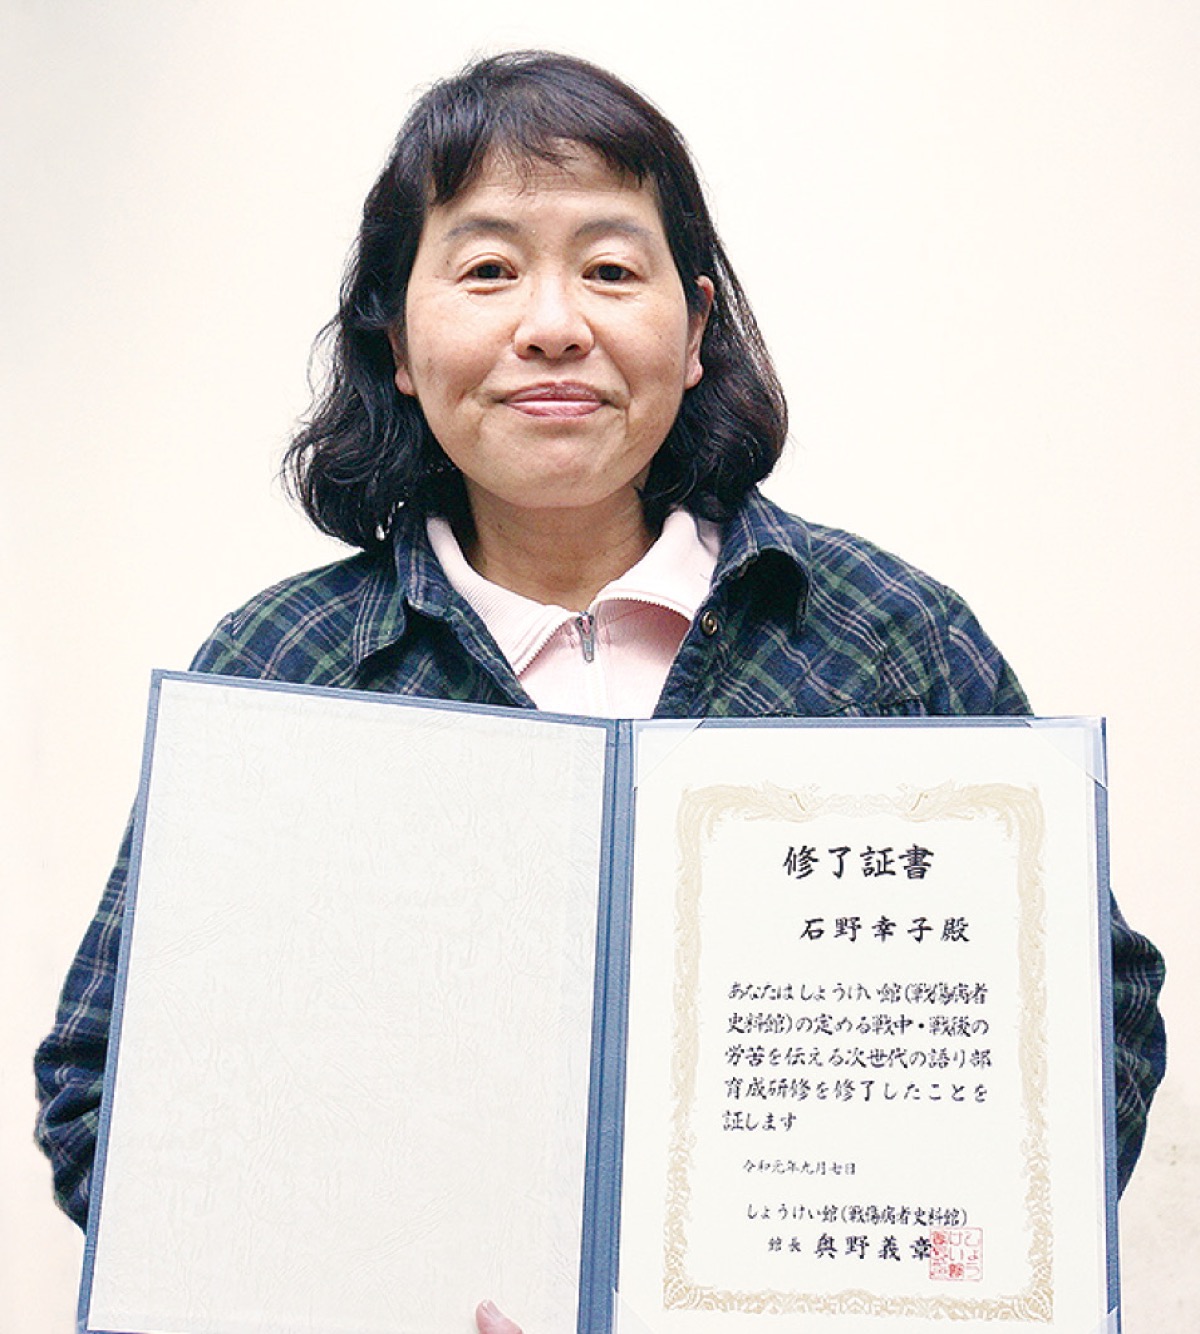 修了証書
石野幸子殿
あなたはしょうけい館(戦傷病者
史料館)の定める戦中・戦後の
労苦を伝える次世代の語り部
育成研修を修了したことを
証します
令和元年九月七日
しょうけい館(戦傷病者史料館)
館長 奥野義章